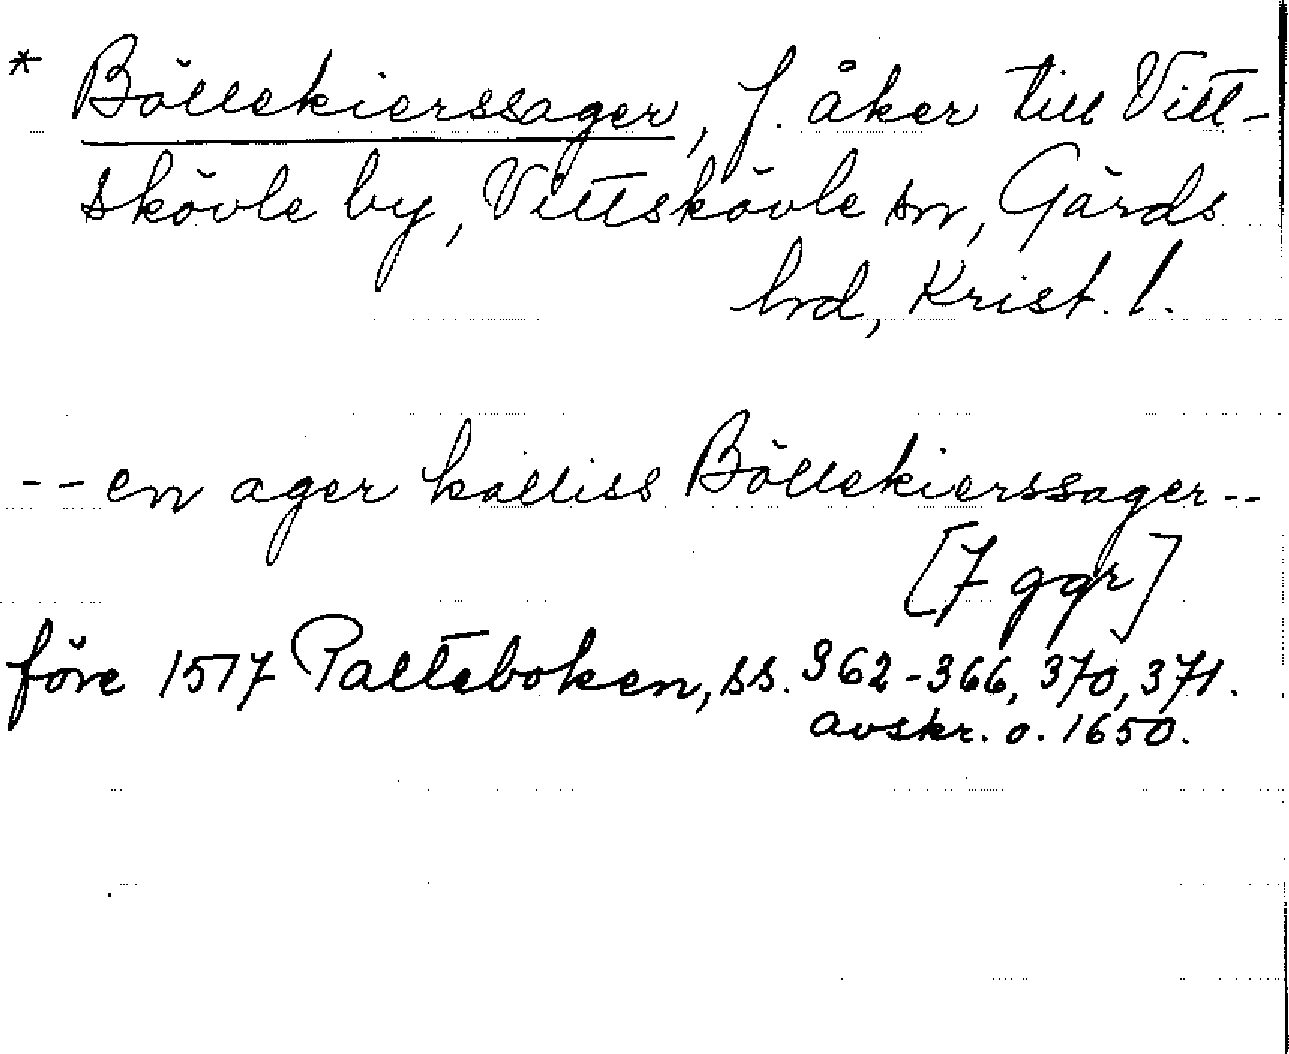 * Böllekierssager, f. åker till Vitt-
skövle by, Vittskövle sn, Gärds
hrd, Krist. l.
-- en ager kalliss Böllekierssager --
[7 ggr]
före 1517 Palteboken, ss. 362-366, 370, 371.
avskr. o. 1650.